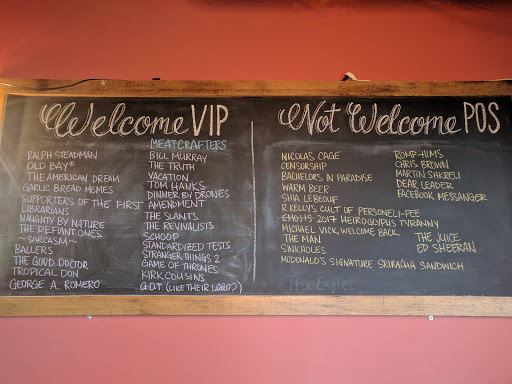 Welcome VIP
MEATCRAFTERS
RALPH STEADMAN
OLD BAY®
THE AMERICAN DREAM
GARLIC BREAD MEMES
SUPPORTERS OF THE FIRST AMENDMENT
LIBRARIANS
NAUGHTY BY NATURE
THE DEFIANT ONES
~SARCASM~
BALLERS
THE GOOD DOCTOR
TROPICAL DON
GEORGE A. ROMERO
BILL MURRAY
THE TRUTH
VACATION
TOM HANKS
DINNER BY DRONES
THE SLANTS
THE REVIVALISTS
SCHOOP
STANDARDIZED TESTS
STRANGER THINGS 2
GAME OF THRONES
KIRK COUSINS
G.O.T (LIKE THEIR LORD?)
Not Welcome POS
NICOLAS CAGE
CENSORSHIP
BACHELORS IN PARADISE
WARM BEER
SHIA LEBEOUF
R.KELLY'S CULT OF PERSONELI-PEE
EMOJIS: 2017 HEIROGLYPHS TYRANNY
MICHAEL VICK, WELCOME BACK
THE MAN
SINKHOLES
MCDONALD'S SIGNATURE SRIRACHA SANDWICH
The Eagles
ROMP-HIMS
CHRIS BROWN
MARTIN SHKRELI
DEAR LEADER
FACEBOOK MESSANGER
THE JUICE
ED SHEERAN